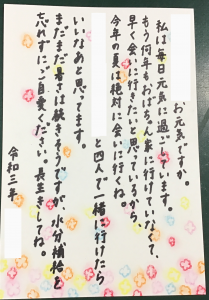 お元気ですか。
私は毎日元気に過ごしています。
もう何年もおばちゃん家に行けていなくて、
早く会いに行きたいと思っているから
今年の夏は絶対に会いに行くね。
と四人で一緒に行けたら
いいなあと思ってます。
まだまだ暑さは続きそうですが、水分補給を
忘れずにご自愛ください。長生きしてね。
令和三年